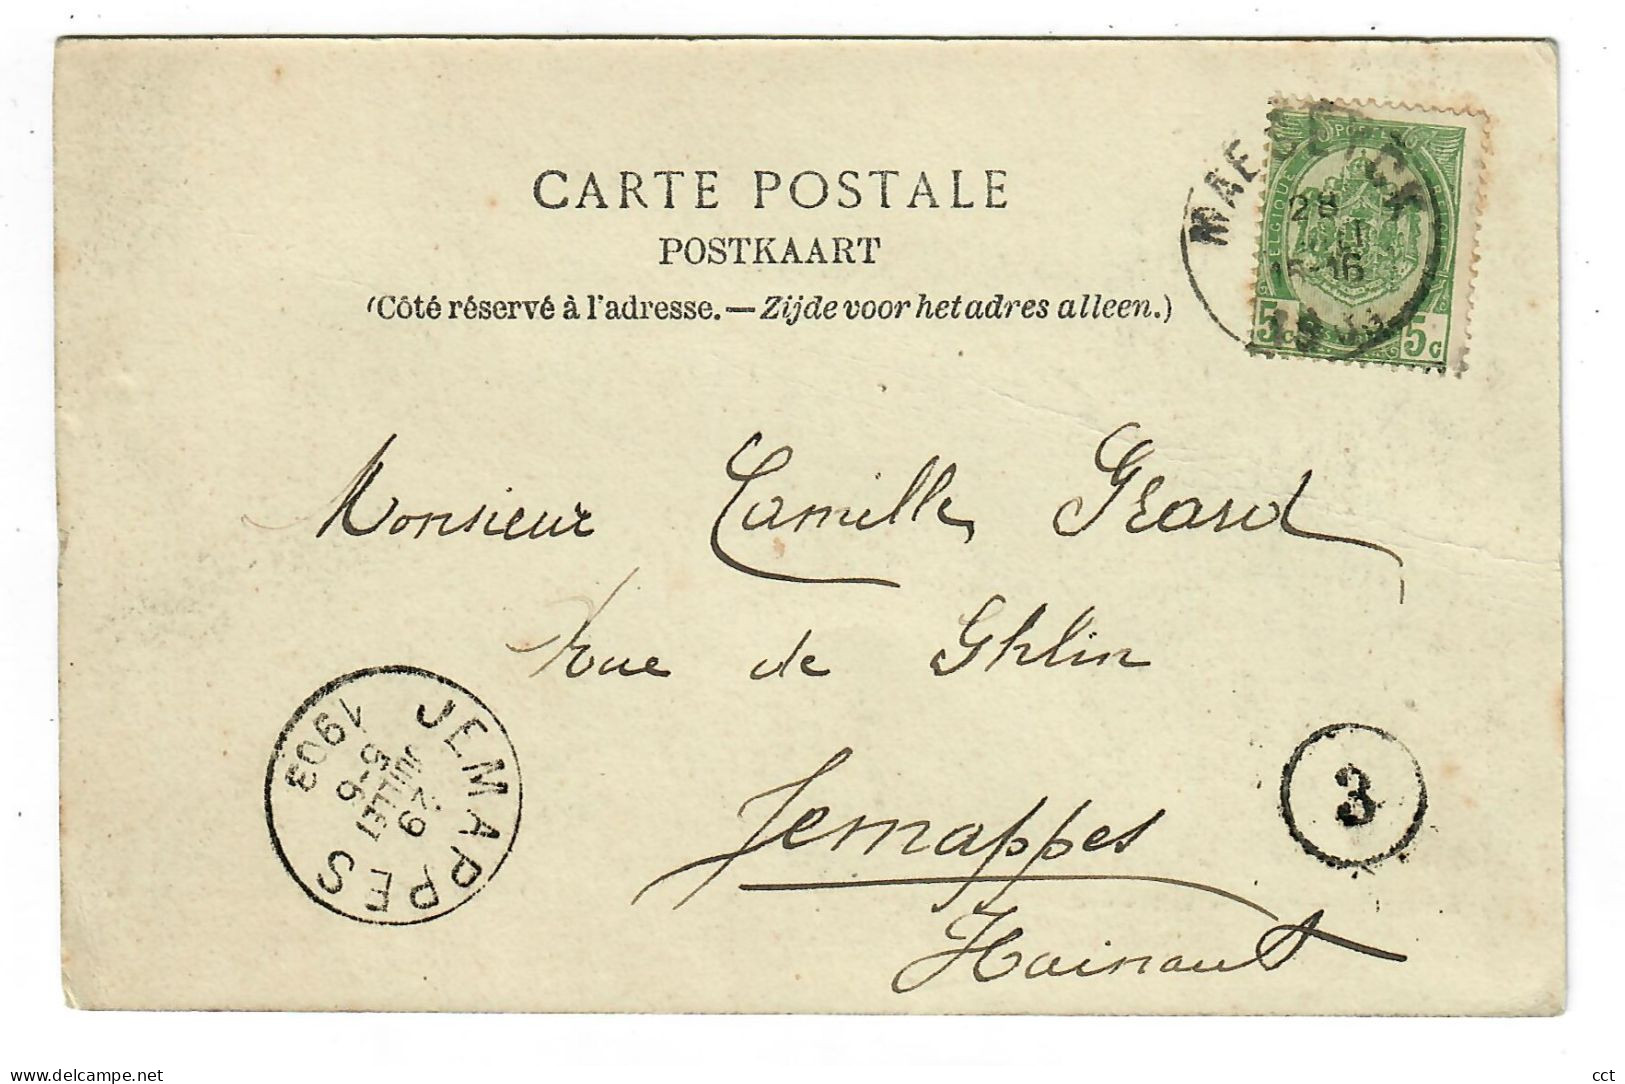 CARTE POSTALE
POSTKAART
(Côté réservé à l'adresse. — Zijde voor het adres alleen.)
MAESEYCK
28
15-16
POSTES
BELGIQUE
5 c 5 c
Monsieur Camille Gérard
Rue de Ghlin
Jemappes
Hainaut
JEMAPPES
29
JUILLET
5-6
1903
3
delcampe.net
cct